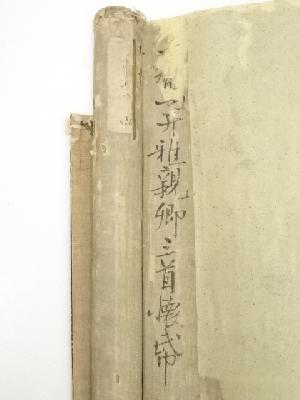 雅親卿三首懐紙